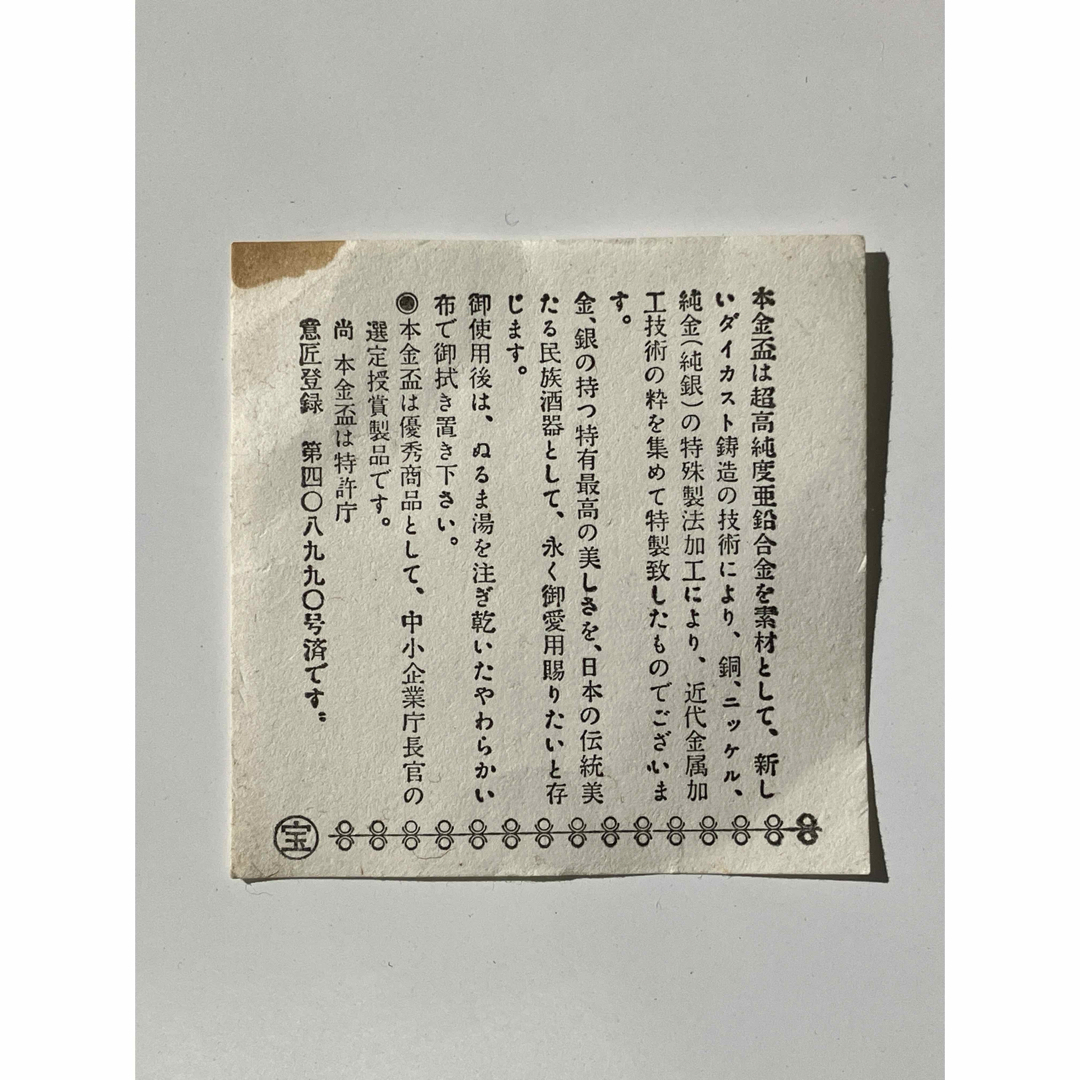 本金盃は超高純度亜鉛合金を素材として、新し
いダイカスト鋳造の技術により、銅、ニッケル、
純金(純銀)の特殊製法加工により、近代金属加
工技術の粋を集めて特製致したものでございま
す。
金、銀の持つ特有最高の美しさを、日本の伝統美
たる民族酒器として、永く御愛用賜りたいと存
じます。
御使用後は、ぬるま湯を注ぎ乾いたやわらかい
布で御拭き置き下さい。
◉本金盃は優秀商品として、中小企業庁長官の
選定授賞製品です。
尚 本金盃は特許庁
意匠登録 第四〇八九九〇号済です。
宝